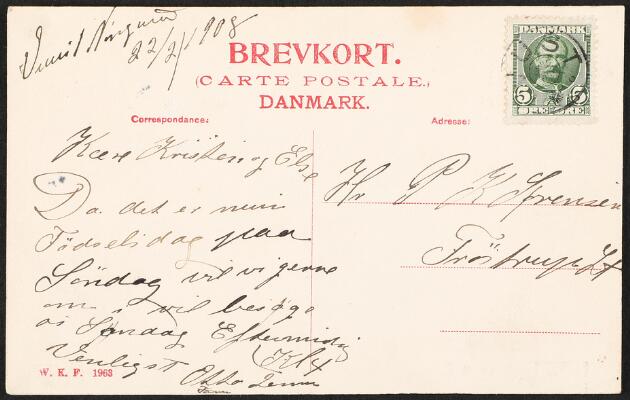 22/2/1908
BREVKORT.
(CARTE POSTALE.)
DANMARK.
DANMARK
5 5
Correspondance:
Adresse:
Kære Kristen og Else
Da det er min
Fødselsdag paa
Søndag vil vi gerne
om i vil besøge
os Søndag Eftermidig
Kl 4
Venligst
Otto
Hr P K Sørensen
Tröstrup
W. K. F. 1963